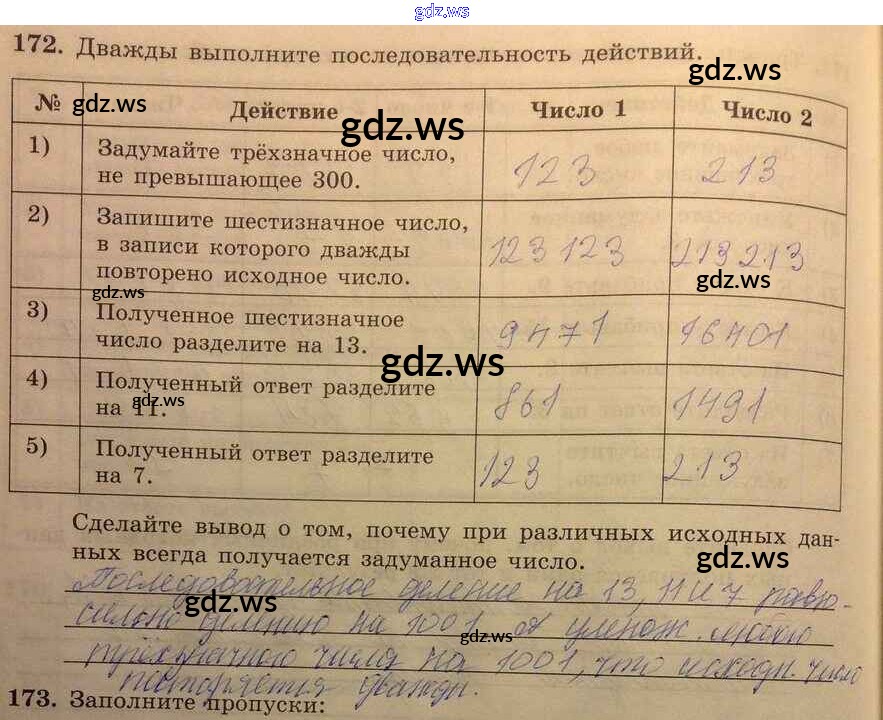 gdz.ws
172. Дважды выполните последовательность действий.
gdz.ws
№ gdz.ws Действие Число 1 Число 2
gdz.ws
1) Задумайте трёхзначное число, 123 213
не превышающее 300.
2) Запишите шестизначное число,
в записи которого дважды 123 123 213 213
повторено исходное число. gdz.ws
gdz.ws
3) Полученное шестизначное
число разделите на 13. 9471 16401
gdz.ws
4) Полученный ответ разделите 861 1491
на 11. gdz.ws
5) Полученный ответ разделите
на 7. 123 213
Сделайте вывод о том, почему при различных исходных дан-
ных всегда получается задуманное число. gdz.ws
Последовательное деление на 13, 11 и 7 равно-
gdz.ws
сильно делению на 1001, а умнож. любого
gdz.ws
трёхзначного числа на 1001, что исходн. число
повторяется дважды.
173. Заполните пропуски: